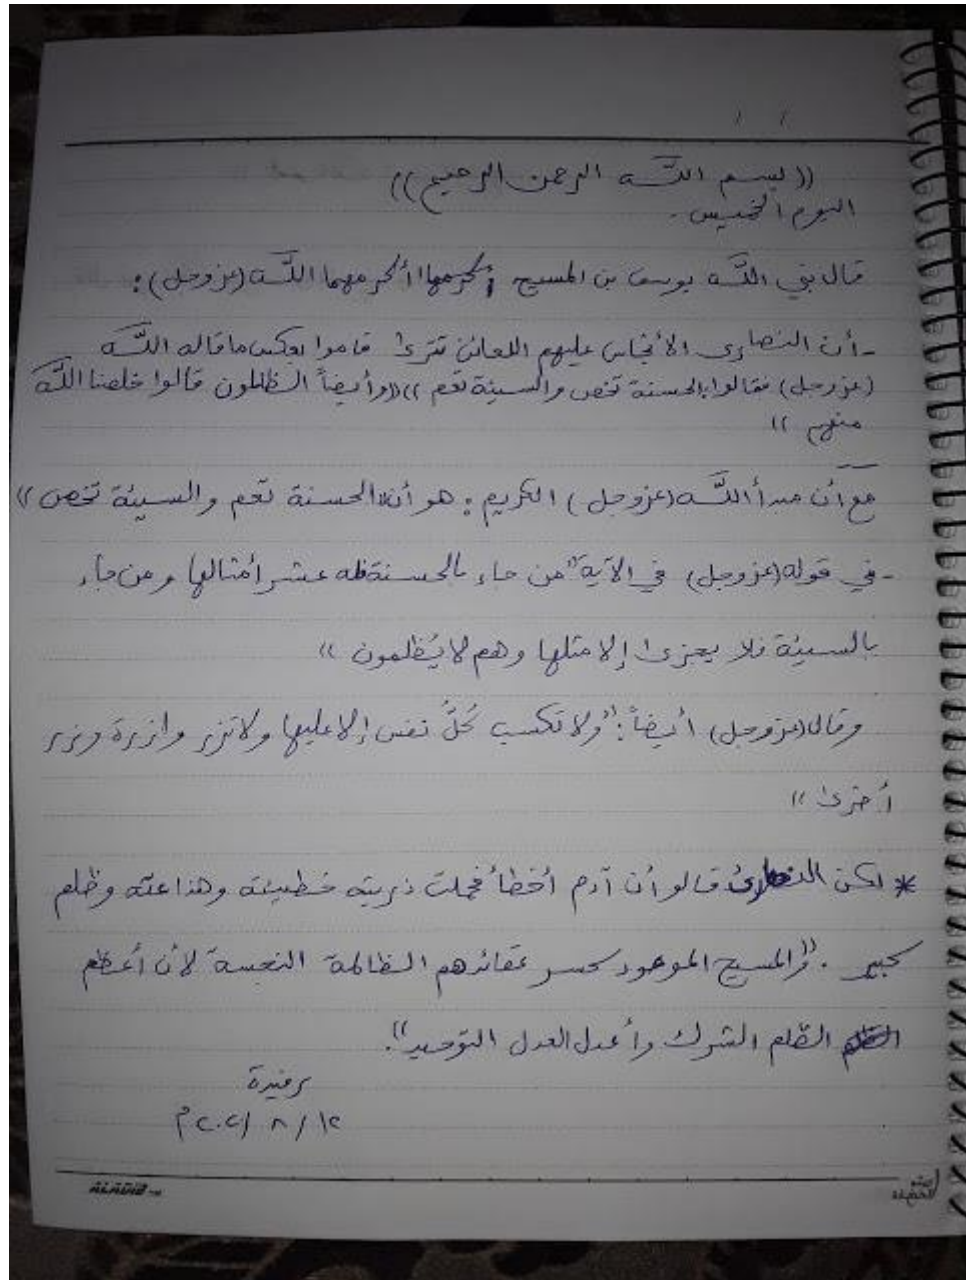 / /
((بسم اللّه الرحمن الرحيم))
اليوم الخميس.
قال نبي اللّه يوسف بن المسيح أكرمهما اللّه (عزوجل):
-أن النصارى الأنجاس عليهم اللعائن تترىٰ قاموا بعكس ما قاله اللّه
(عزوجل) فقالوا: الحسنة تخص والسيئة تعم)) ((وأيضاً الظالمون قالوا خلصنا اللّه
منهم))
مع أن مبدأ اللّه (عزوجل) الكريم: هو أن "الحسنة تعم والسيئة تخص))
-في قوله (عزوجل) في الآية "من جاء بالحسنة فله عشر أمثالها ومن جاء
بالسيئة فلا يجزىٰ إلا مثلها وهم لا يُظلمون))
وقال (عزوجل) أيضاً: "ولا تكسب كُلُّ نفس إلا عليها ولا تزر وازرة وزر
أُخرىٰ))
* لكن النصارىٰ قالو أن آدم أخطأ فحملت ذريته خطيئته وهذا عته وظلم
كبير. "والمسيح الموعود كسر عقائدهم الظالمة النجسة لأن أعظم
الظلم الشرك وأعدل العدل التوحيد".
رفيدة
١٢/٨/٢٠٢١م